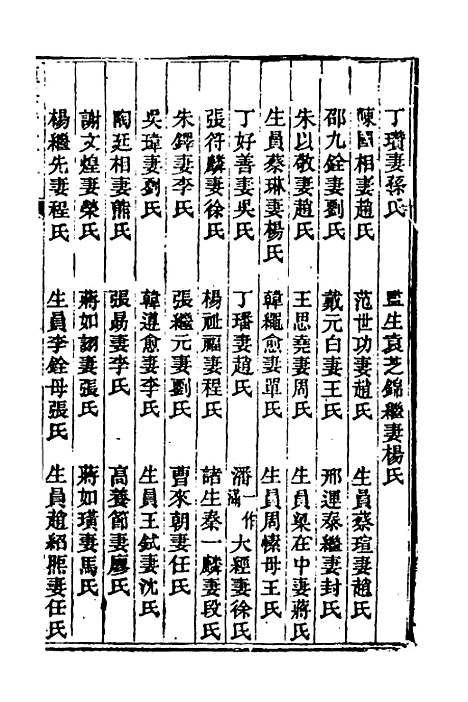 丁瓚妻孫氏 監生袁芝錦繼妻楊氏
陳國相妻趙氏 范世功妻趙氏 生員蔡瑄妻趙氏
邵九銓妻劉氏 戴元白妻王氏 邢運泰繼妻封氏
朱以敬妻趙氏 王思堯妻周氏 生員梁在中妻蔣氏
生員蔡琳妻楊氏 韓繩愈妻單氏 生員周愫母王氏
丁好善妻吳氏 丁璠妻趙氏 潘一作滿大經妻徐氏
張符麟妻徐氏 楊祉福妻程氏 諸生秦一麟妻段氏
朱鐸妻李氏 張繼元妻劉氏 曹來朝妻任氏
吳瑋妻劉氏 韓遵愈妻李氏 生員王鉽妻沈氏
陶廷相妻熊氏 張勗妻李氏 高養節妻廖氏
謝文煌妻榮氏 蔣如詡妻張氏 蔣如璜妻馬氏
楊繼先妻程氏 生員李銓母張氏 生員趙紹熙妻任氏